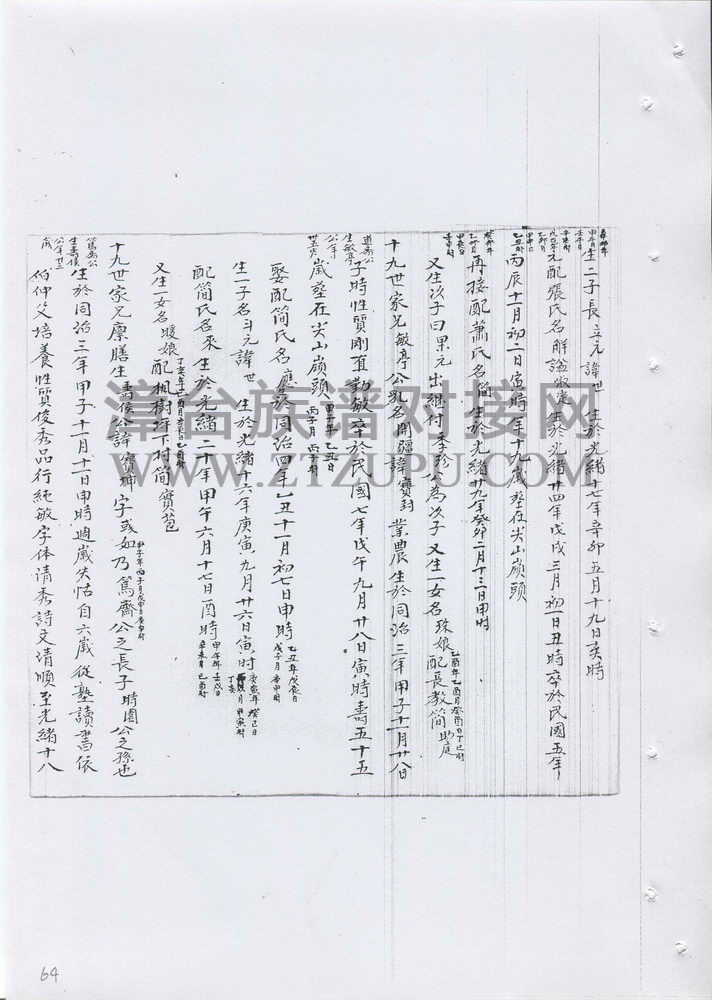 生二子長立元諱世 生於光緒十七年辛卯五月十九日亥時
元配張氏名解謚淑 生於光緒廿四年戊戌三月初一日丑時卒於民國五年
丙辰十一月初二日寅時年十九歲塟在尖山嶺頭
再接配蕭氏名簡生於光緒廿九年癸卯二月十三日申時
又生次子曰果元出継村季珍公為次子又生一女名珠娘配長教簡
十九世家兄敏亭公乳名開疆諱寶封業農生於同治三年甲子十一月廿八日
子時性質剛直勤敏卒於民國七年戊午九月廿八日寅時壽五十五
歲塟在尖山嶺頭
娶配簡氏名應於同治四年乙丑十一月初七日申時
生一子名斗元諱世 生於光緒十六年庚寅九月廿六日寅時
配簡氏名來生於光緒二十年甲午六月十七日酉時
又生一女名暖娘配楓樹坪下村簡寶
十九世家兄廪膳生喬侯公諱寶坤字或如乃篤齋公之長子時園公之孫也
生於同治三年甲子十一月十一日申時週歲失怙自六歲從塾讀書依
伯仲父培養性質俊秀品行純敏字体清秀詩文清順至光緒十八
漳台族谱对接网
WWW.ZTZUPU.COM
64